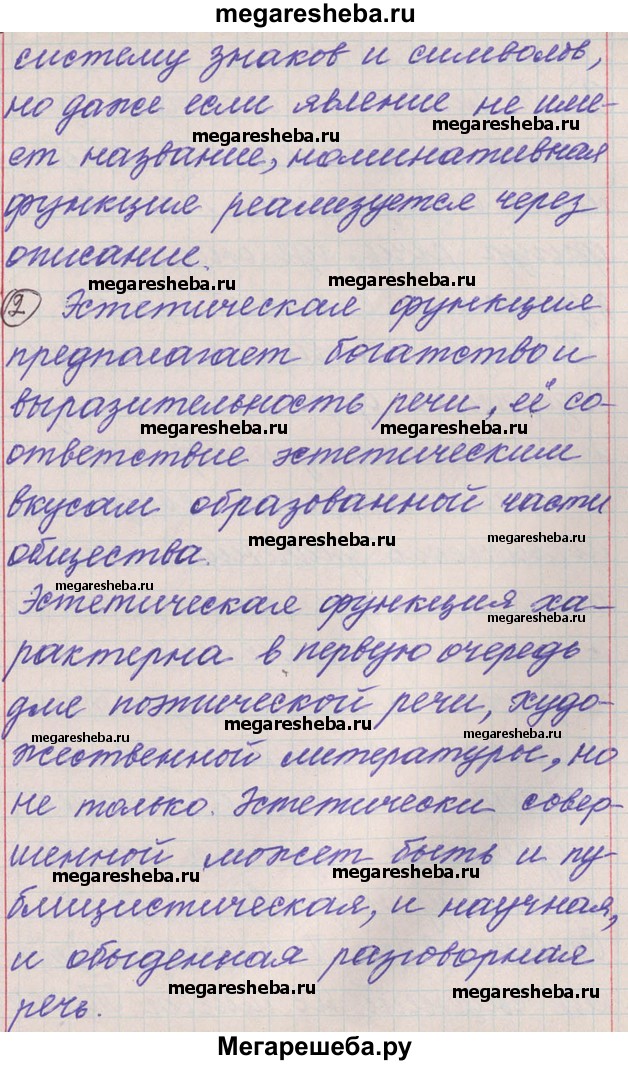 megaresheba.ru
систему знаков и символов,
но даже если явление не име-
megaresheba.ru
megaresheba.ru
ет название, номинативная
функция реализуется через
описание.
megaresheba.ru
megaresheba.ru
2 Эстетическая функция
предполагает богатство и
выразительность речи, её со-
megaresheba.ru
megaresheba.ru
ответствие эстетическим
вкусам образованной части
megaresheba.ru
megaresheba.ru
общества.
megaresheba.ru
Эстетическая функция ха-
megaresheba.ru
рактерна в первую очередь
для поэтической речи, худо-
megaresheba.ru
megaresheba.ru
megaresheba.ru
жественной литературы, но
не только. Эстетически совер-
шенной может быть и пу-
megaresheba.ru
megaresheba.ru
блицистическая, и научная,
и обыденная разговорная
megaresheba.ru
megaresheba.ru
речь.
Мегарешеба.ру